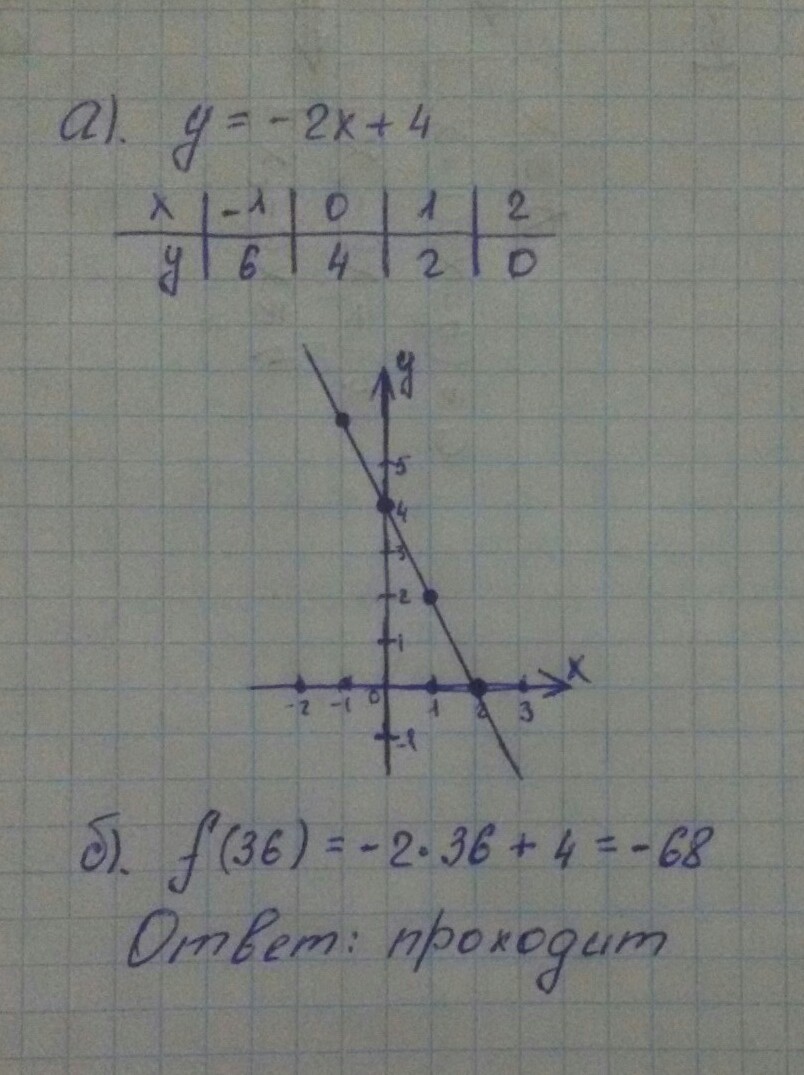 а). y = -2x + 4
x | -1 | 0 | 1 | 2
y | 6 | 4 | 2 | 0
y
5
4
3
2
1
x
-2 -1 0 1 2 3
-1
б). f(36) = -2·36 + 4 = -68
Ответ: проходит